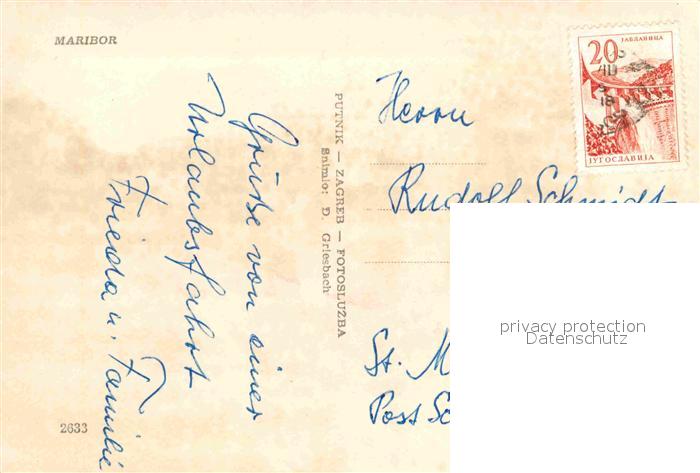 MARIBOR
Grüße von einer
Urlaubsfahrt
Frieda u. Familie
2633
PUTNIK — ZAGREB — FOTOSLUŽBA
Snimio: Đ. Griesbach
20
ЈАБЛАНИЦА
ЈУГОСЛАВИЈА
Herrn
Rudolf Schmidt
St. M
Post Sc
privacy protection
Datenschutz